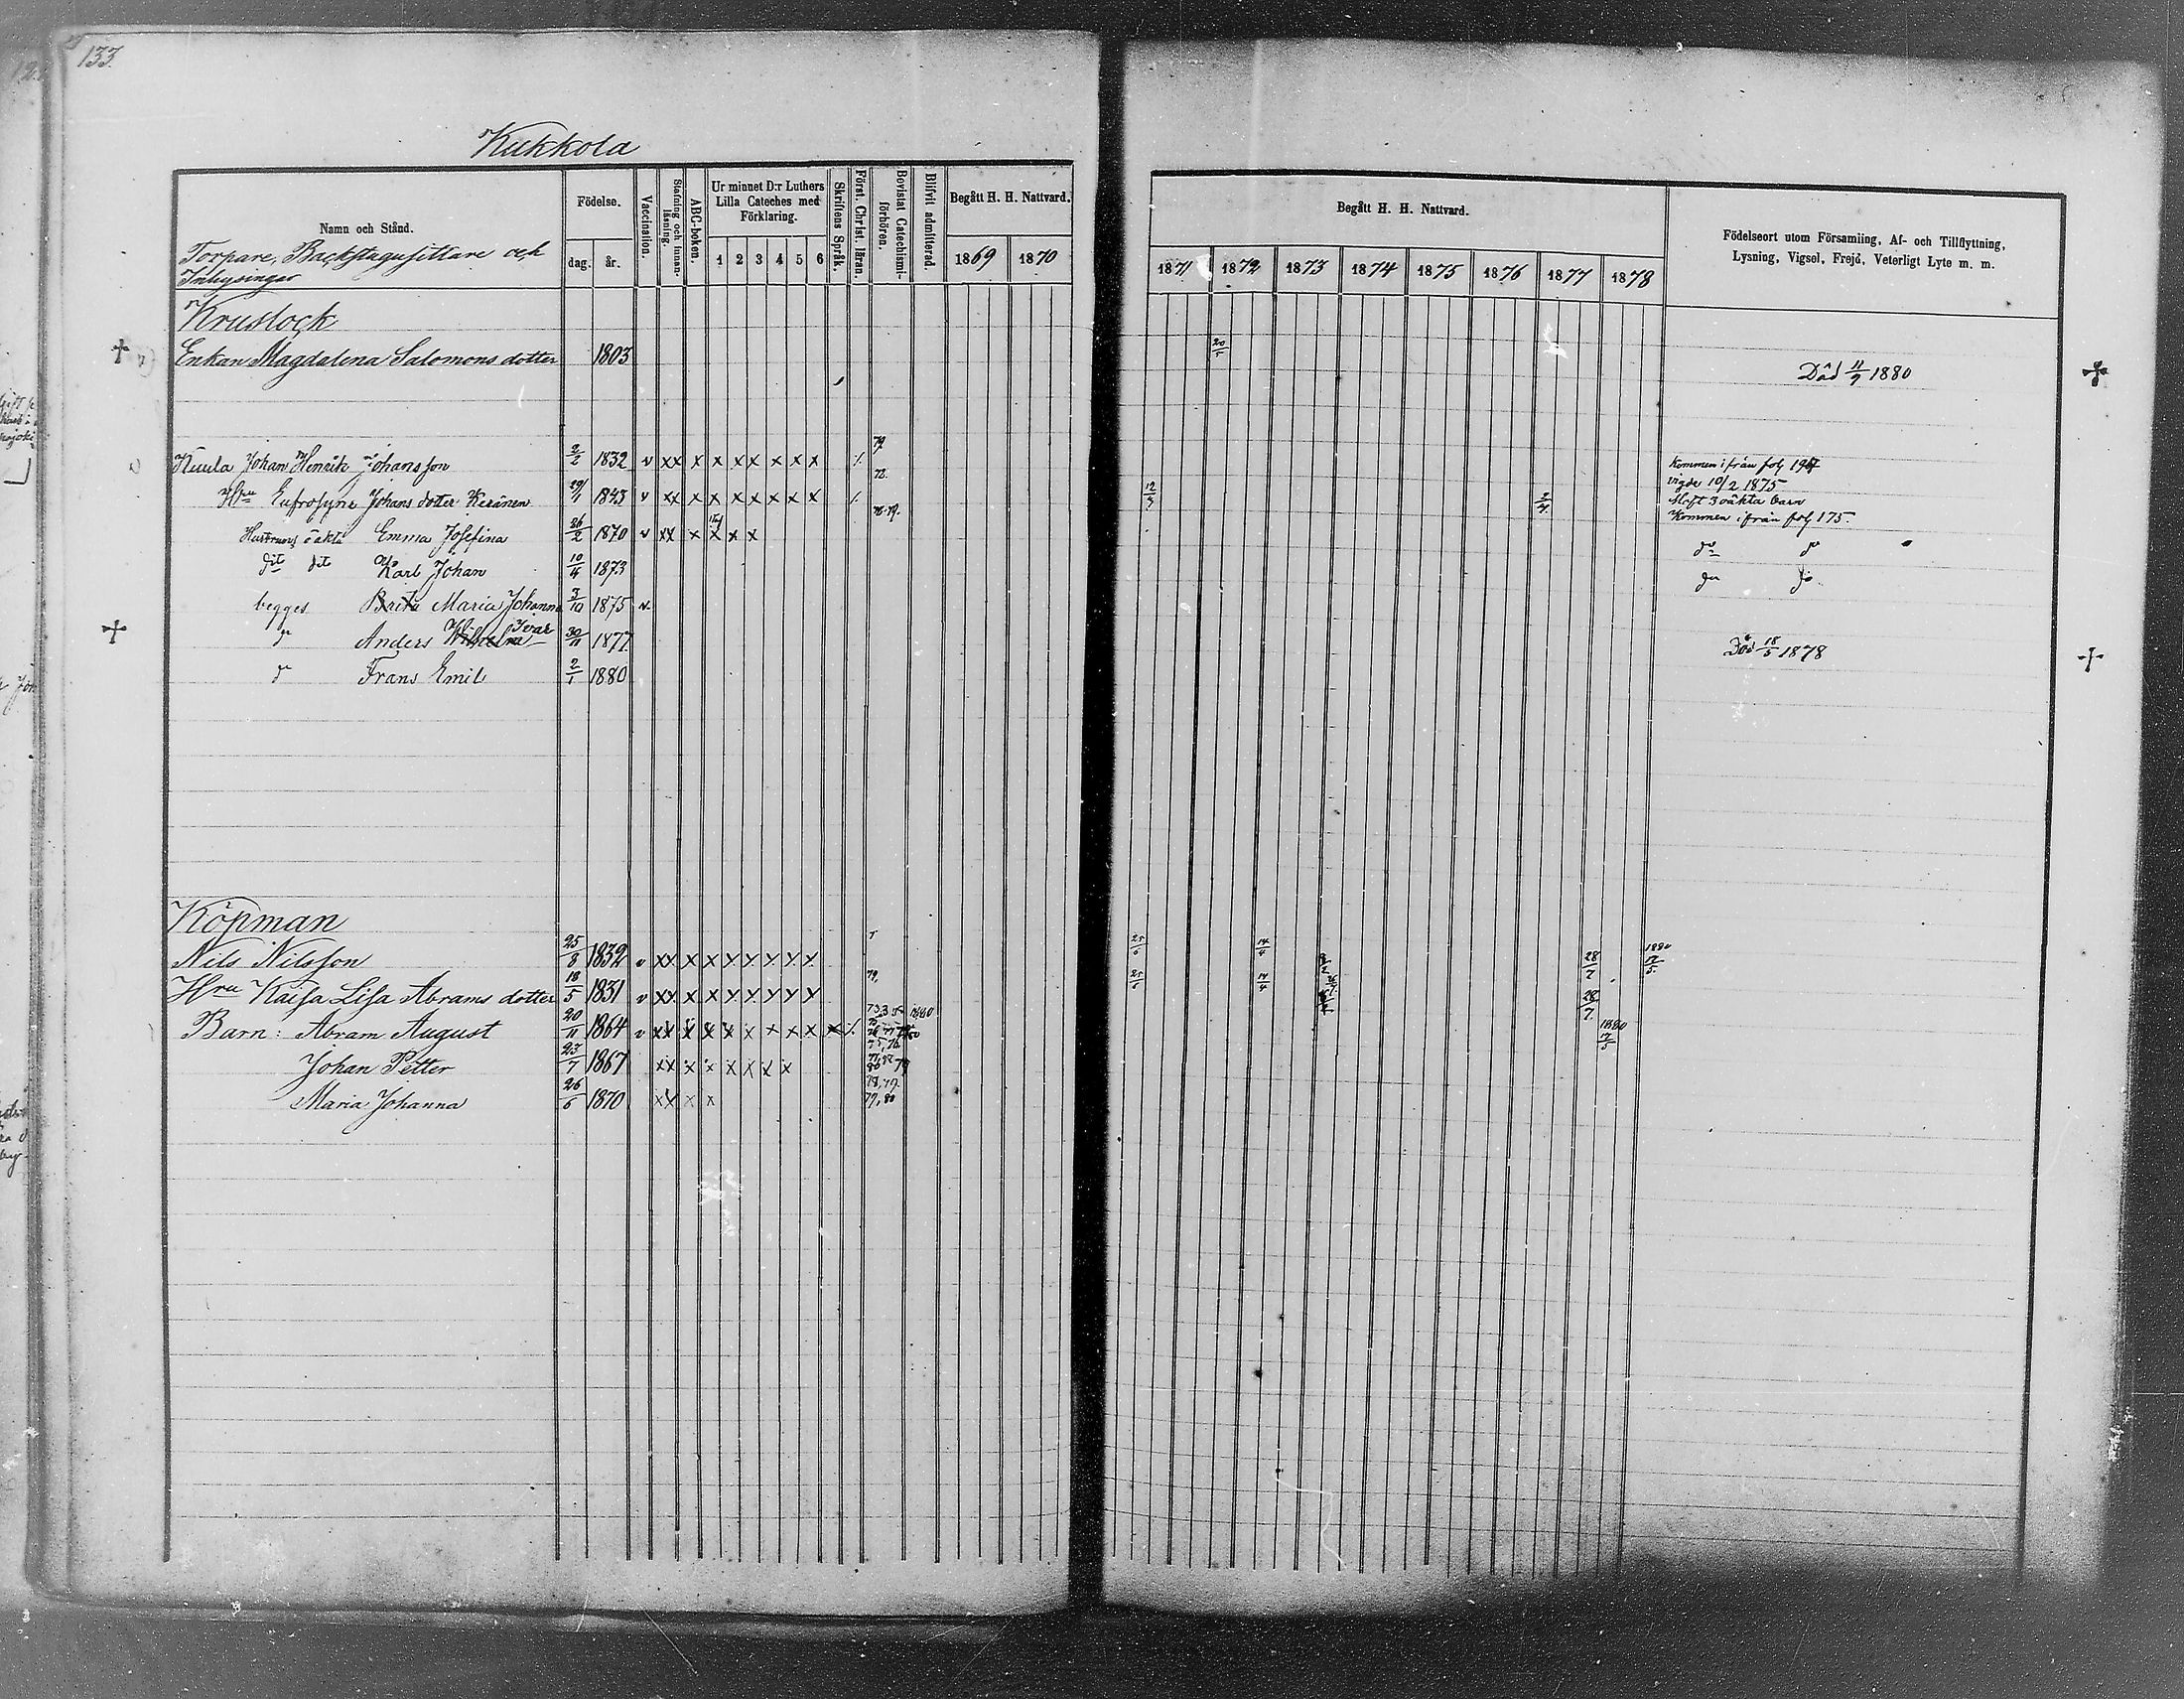 133.
Kukkola
Namn och Stånd.
Torpare, Backstugusittare och
Inhysingar
Födelse.
dag. år.
Vaccination.
Stafning och innan-läsning.
ABC-boken.
Ur minnet D:r Luthers
Lilla Cateches med
Förklaring.
1 2 3 4 5 6
Skriftens Språk.
Först. Christ. läran.
Bevistat Catechismi-förhören.
Blifvit admitterad.
Begått H. H. Nattvard.
1869 1870
Begått H. H. Nattvard.
1871 1872 1873 1874 1875 1876 1877 1878
Födelseort utom Församling, Af- och Tillflyttning,
Lysning, Vigsel, Frejd, Veterligt Lyte m. m.
Kruslock
Enkan Magdalena Salomons dotter 1803 20/5 Död 11/9 1880
Kuula Johan Henrik Johansson 2/2 1832 v xx x x x x x x x 79. Kommen ifrån fol 196
vigde 10/2 1875
Hru Eufrosyne Johans dotter Keränen 29/1 1843 v xx x x x x x x x 78. 12/3 Haft 3 oäkta barn
Kommen ifrån fol 175.
Hustruns oäkta Emma Josefina 26/2 1870 v xx x x x x 78.79. do do
dit dit Karl Johan 10/4 1873 do do
begges Brita Maria Johanna 3/10 1875 v
do Anders Wilhelm Ivar 30/11 1877 Död 18/5 1878
do Frans Emil 2/1 1880
Köpman
Nils Nilsson 25/8 1832 v xx x x x x x x x 25/6 14/4 28/7 1880 17/5
Hru Kaisa Lisa Abrams dotter 18/5 1831 v xx x x x x x x x 79, 25/6 14/4 28/7
Barn: Abram August 20/11 1864 v xx x x x x x x x x 1880 1880 17/5
Johan Petter 23/7 1867 xx x x x x x x
Maria Johanna 26/6 1870 xx x x 78,79. 77,80